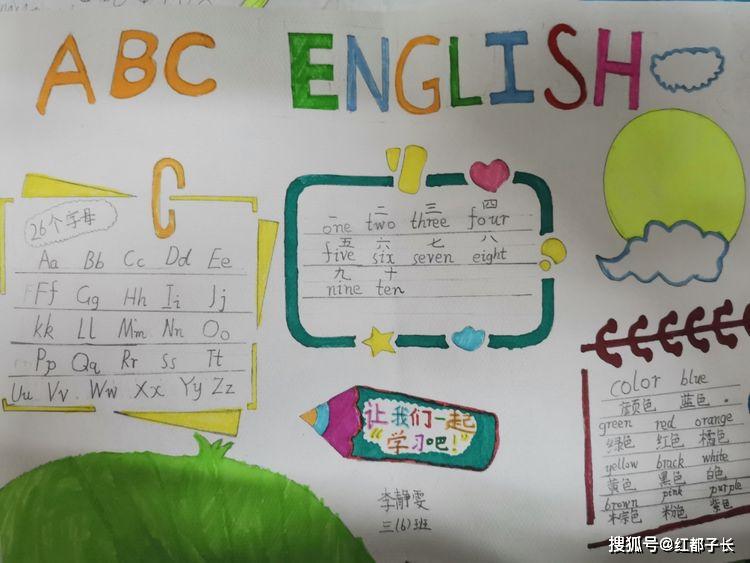 ABC ENGLISH
C
26个字母
Aa Bb Cc Dd Ee
Ff Gg Hh Ii Jj
kk Ll Mm Nn Oo
Pp Qq Rr Ss Tt
Uu Vv Ww Xx Yy Zz
一 二 三 四
one two three four
五 六 七 八
five six seven eight
九 十
nine ten
让我们一起
“学习吧！”
李静雯
三(6)班
color blue
颜色 蓝色
green red orange
绿色 红色 橘色
yellow brack white
黄色 黑色 白色
brown pink purple
棕色 粉色 紫色
搜狐号@红都子长